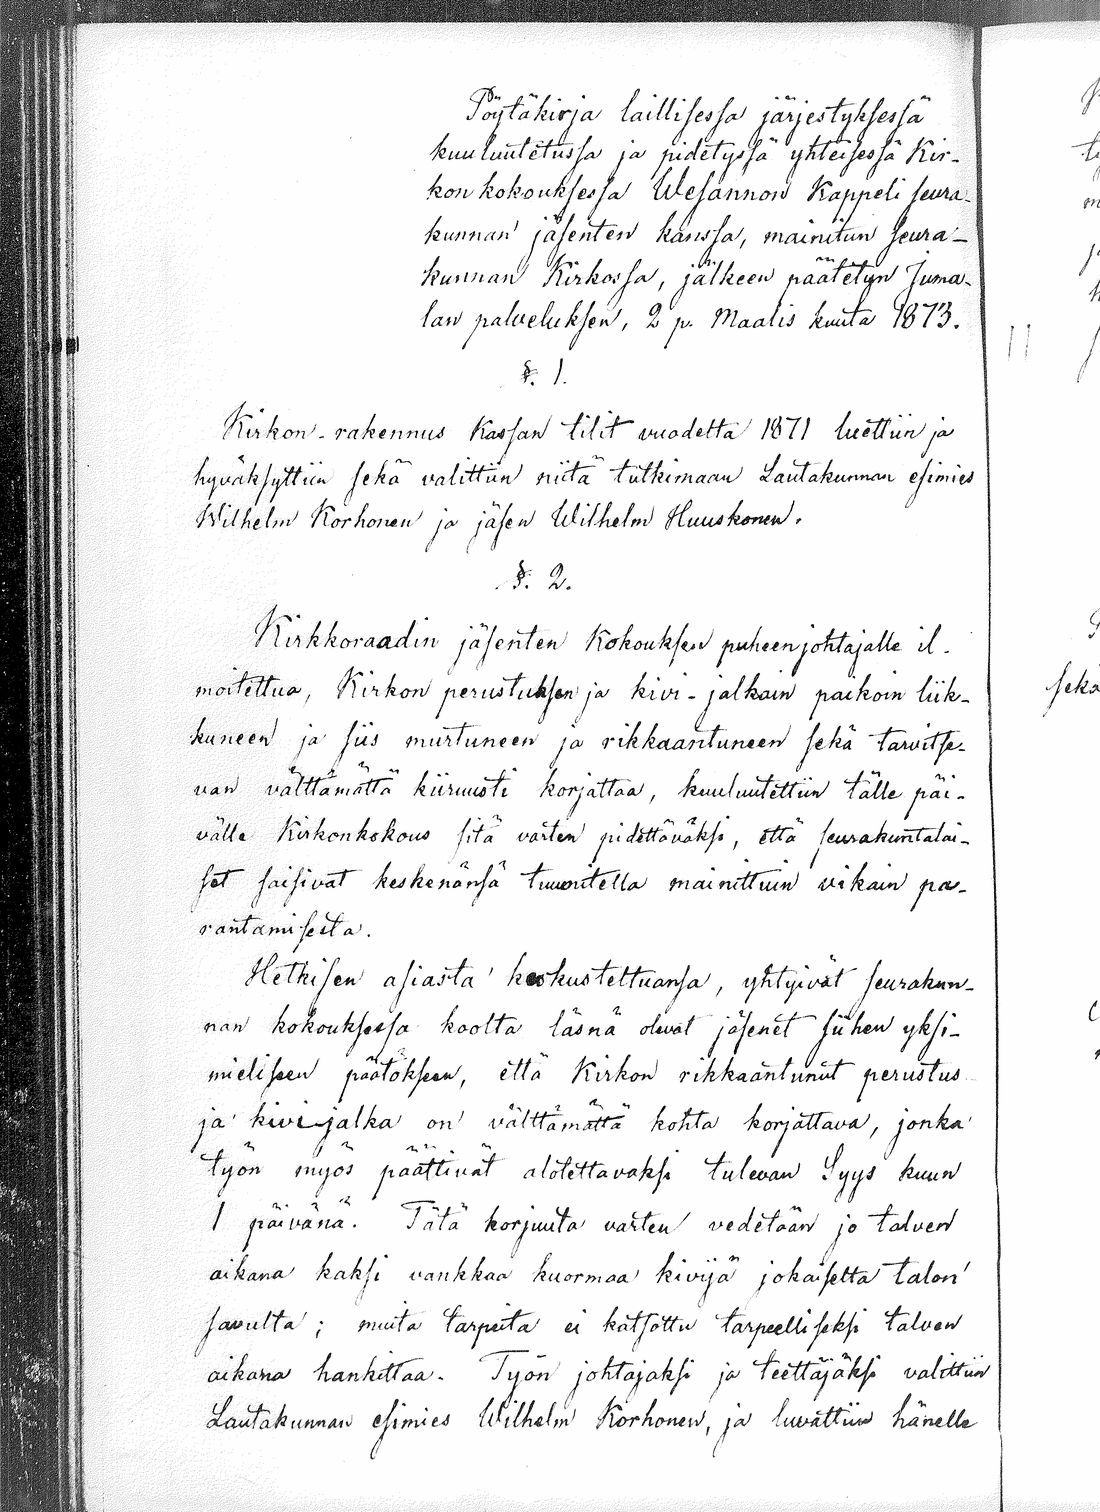 Pöytäkirja laillisessa järjestyksessä
kuuluutetussa ja pidetyssä yhteisessä Kir-
kon kokouksessa Wesannon Kappeli seura-
kunnan jäsenten kanssa, mainitun seura-
kunnan Kirkossa, jälkeen päätetyn Juma-
lan palveluksen, 2 p. Maalis kuuta 1873.
§. 1.
Kirkon-rakennus Kassan tilit vuodelta 1871 luettiin ja
hyväksyttiin sekä valittiin niitä tutkimaan Lautakunnan esimies
Wilhelm Korhonen ja jäsen Wilhelm Huuskonen.
§. 2.
Kirkkoraadin jäsenten Kokouksen puheenjohtajalle il-
moitettua, Kirkon perustuksen ja kivi-jalkain paikoin liik-
kuneen ja siis murtuneen ja rikkaantuneen sekä tarvitse-
van välttämättä kiiruusti korjattaa, kuuluutettiin tälle päi-
välle Kirkonkokous sitä varten pidettäväksi, että seurakuntalai-
set saisivat keskenänsä tuumitella mainittuin vikain pa-
rantamisesta.
Hetkisen asiasta keskusteltuansa, yhtyivät seurakun-
nan kokouksessa koolta läsnä olevat jäsenet siihen yksi-
mieliseen päätökseen, että Kirkon rikkaantunut perustus
ja kivi-jalka on välttämättä kohta korjattava, jonka
työn myös päättivät alotettavaksi tulevan Syys kuun
1 päivänä. Tätä korjuuta varten vedetään jo talven
aikana kaksi vankkaa kuormaa kiviä jokaiselta talon
savulta; muita tarpeita ei katsottu tarpeelliseksi talven
aikana hankittaa. Työn johtajaksi ja teettäjäksi valittiin
Lautakunnan esimies Wilhelm Korhonen, ja luvattiin hänelle
sekä